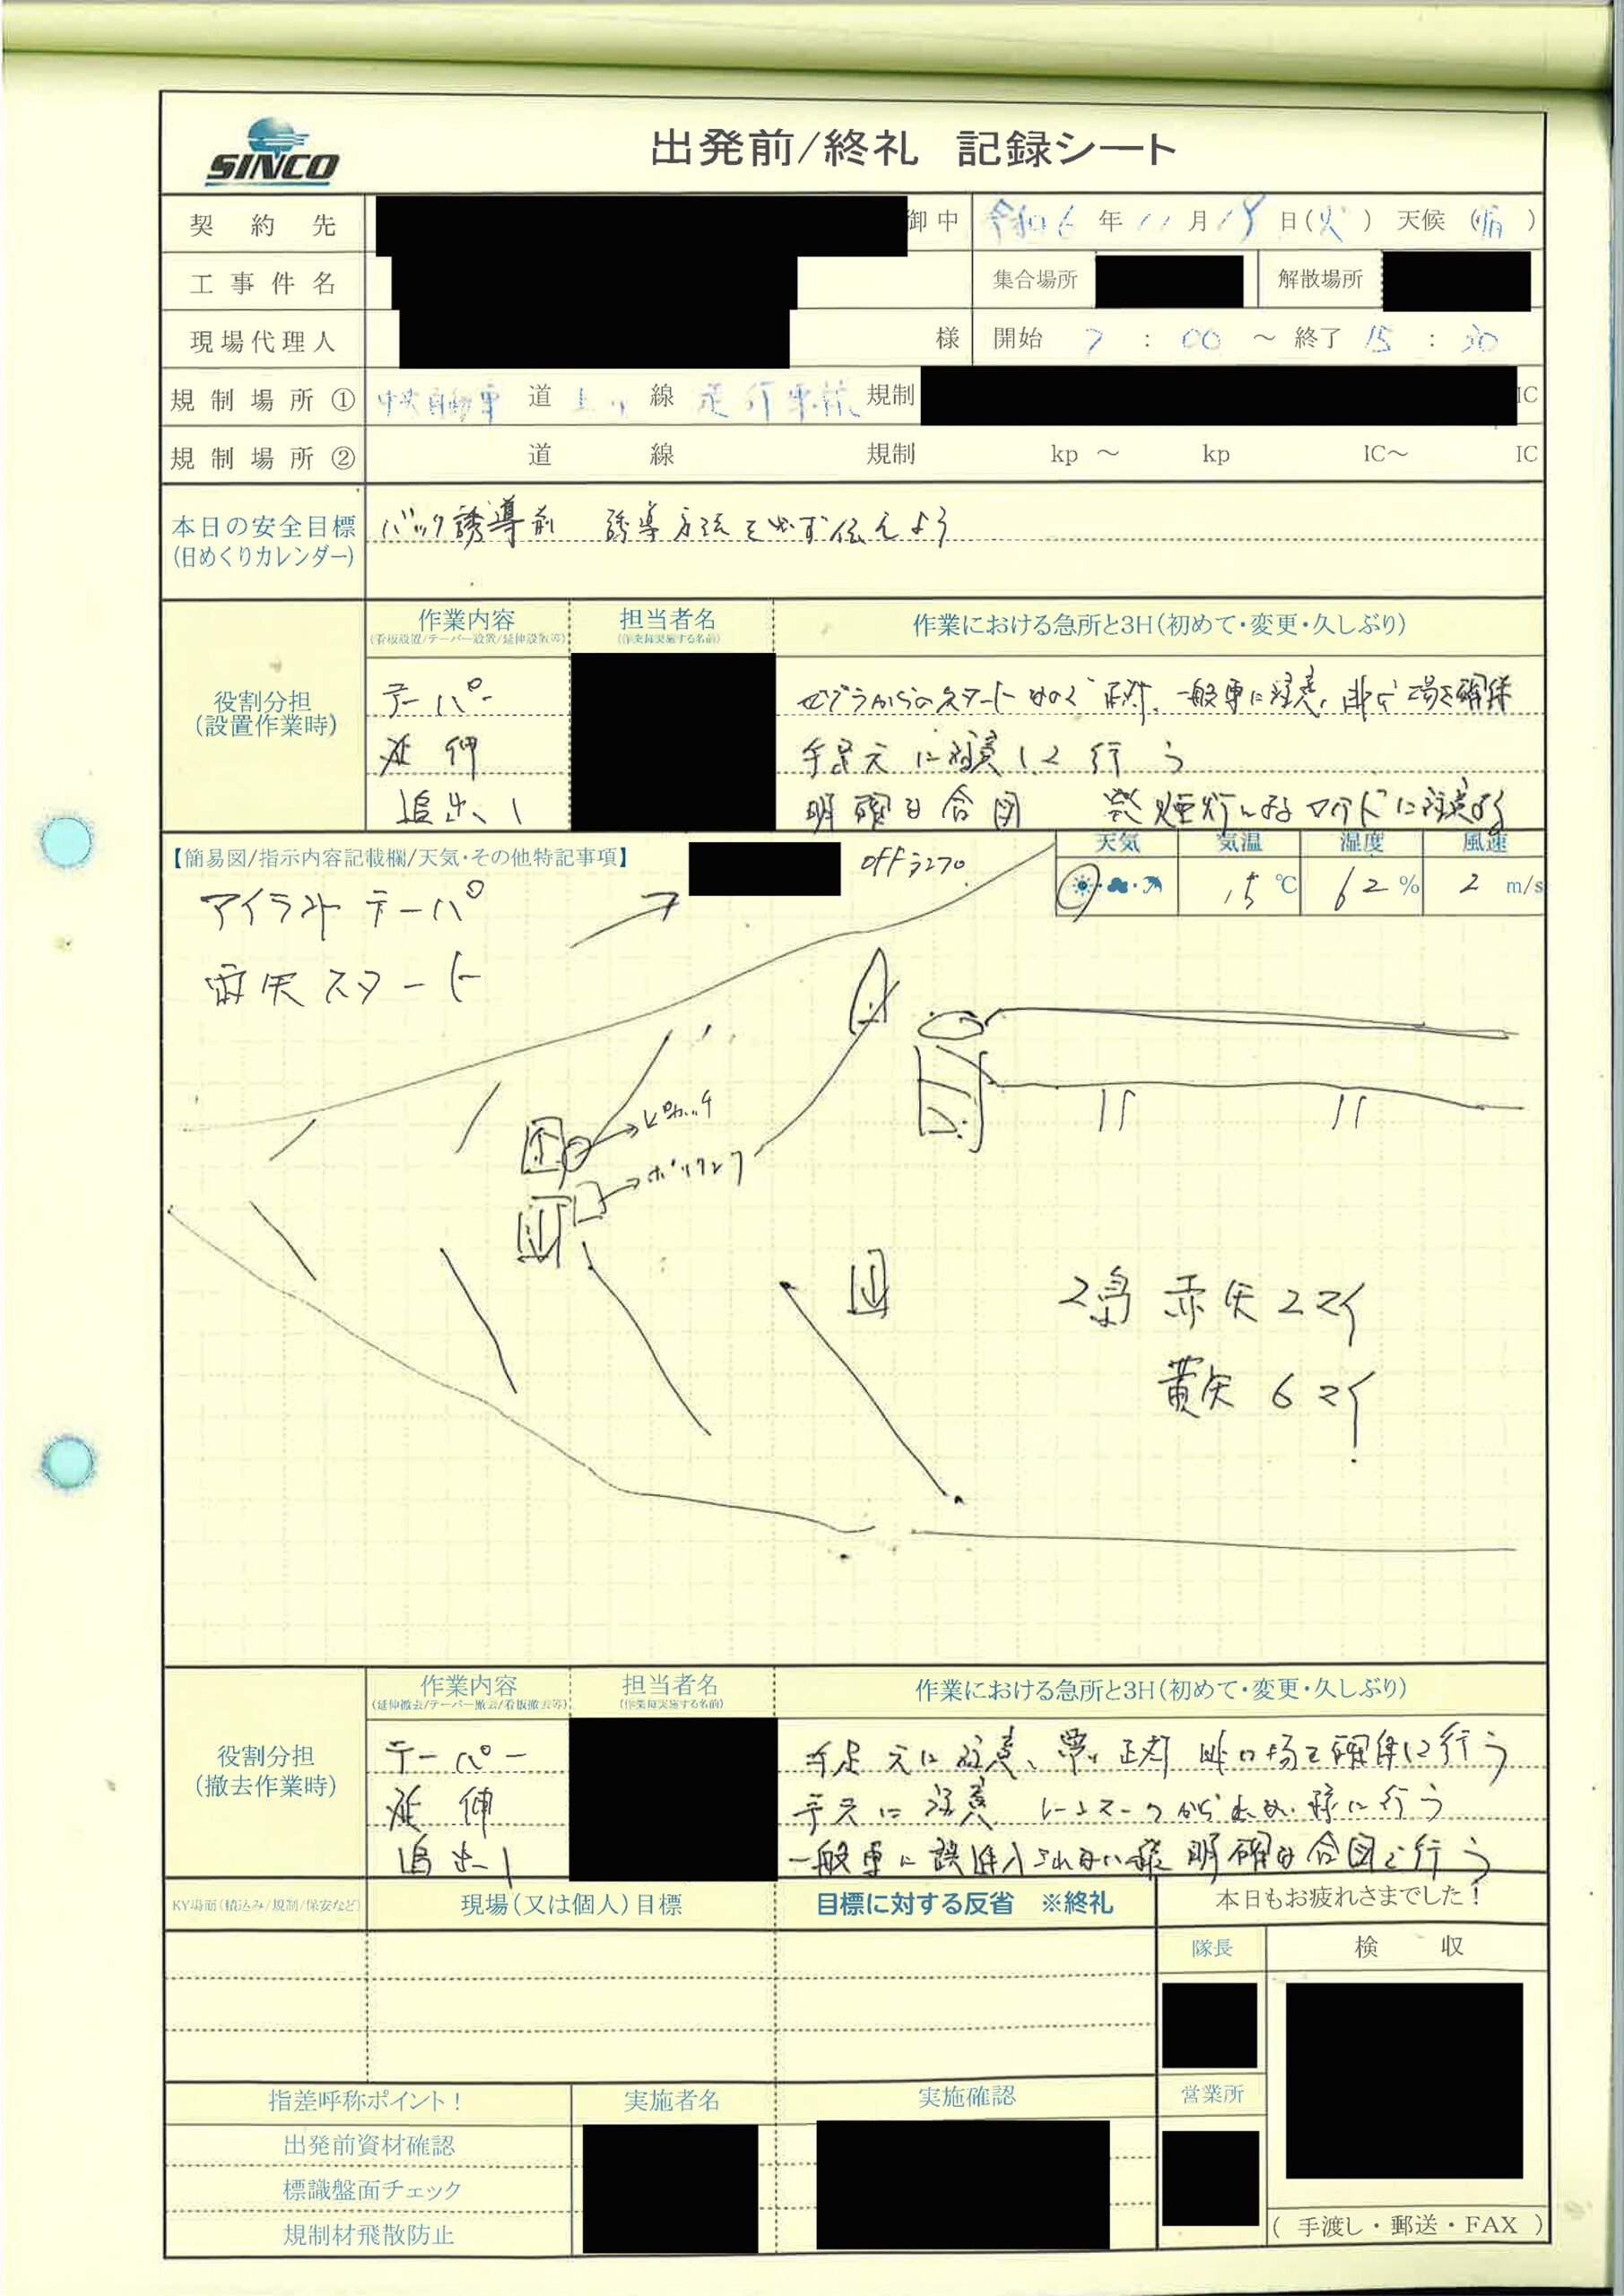 SINCO
出発前/終礼 記録シート
契約先 御中 令和6年11月19日(火) 天候(晴)
工事件名 集合場所 解散場所
現場代理人 様 開始 7:00 ～ 終了 15:30
規制場所① 中央自動車道 上り線 走行車線規制 IC
規制場所② 道 線 規制 kp ～ kp IC～ IC
本日の安全目標
(日めくりカレンダー)
バック誘導前 誘導方法を必ず伝えよう
作業内容 担当者名 作業における急所と3H(初めて・変更・久しぶり)
(看板設置/テーパー設置/延伸設置等) (作業毎実施する名前)
役割分担
(設置作業時)
テーパー ゼブラからのスタートなので 一般車に注意、 場を確保
延伸 手足元に注意して行う
追出し 明確な合図 発煙灯による に注意する
【簡易図/指示内容記載欄/天気・その他特記事項】
天気 気温 湿度 風速
15℃ 62% 2 m/s
アイランドテーパ
矢スタート
ポリタンク
2島 赤矢 2マイ
黄矢 6マイ
作業内容 担当者名 作業における急所と3H(初めて・変更・久しぶり)
(延伸撤去/テーパー撤去/看板撤去等) (作業毎実施する名前)
役割分担
(撤去作業時)
テーパー 手足元に注意、常に正対 場を確保して行う
延伸 手元に注意 レーンマークから出ない様に行う
追出し 一般車に誤進入されない様 明確な合図で行う
KY場面(積込み/規制/保安など) 現場(又は個人)目標 目標に対する反省 ※終礼 本日もお疲れさまでした!
隊長 検収
指差呼称ポイント! 実施者名 実施確認 営業所
出発前資材確認
標識盤面チェック
規制材飛散防止
(手渡し・郵送・FAX)